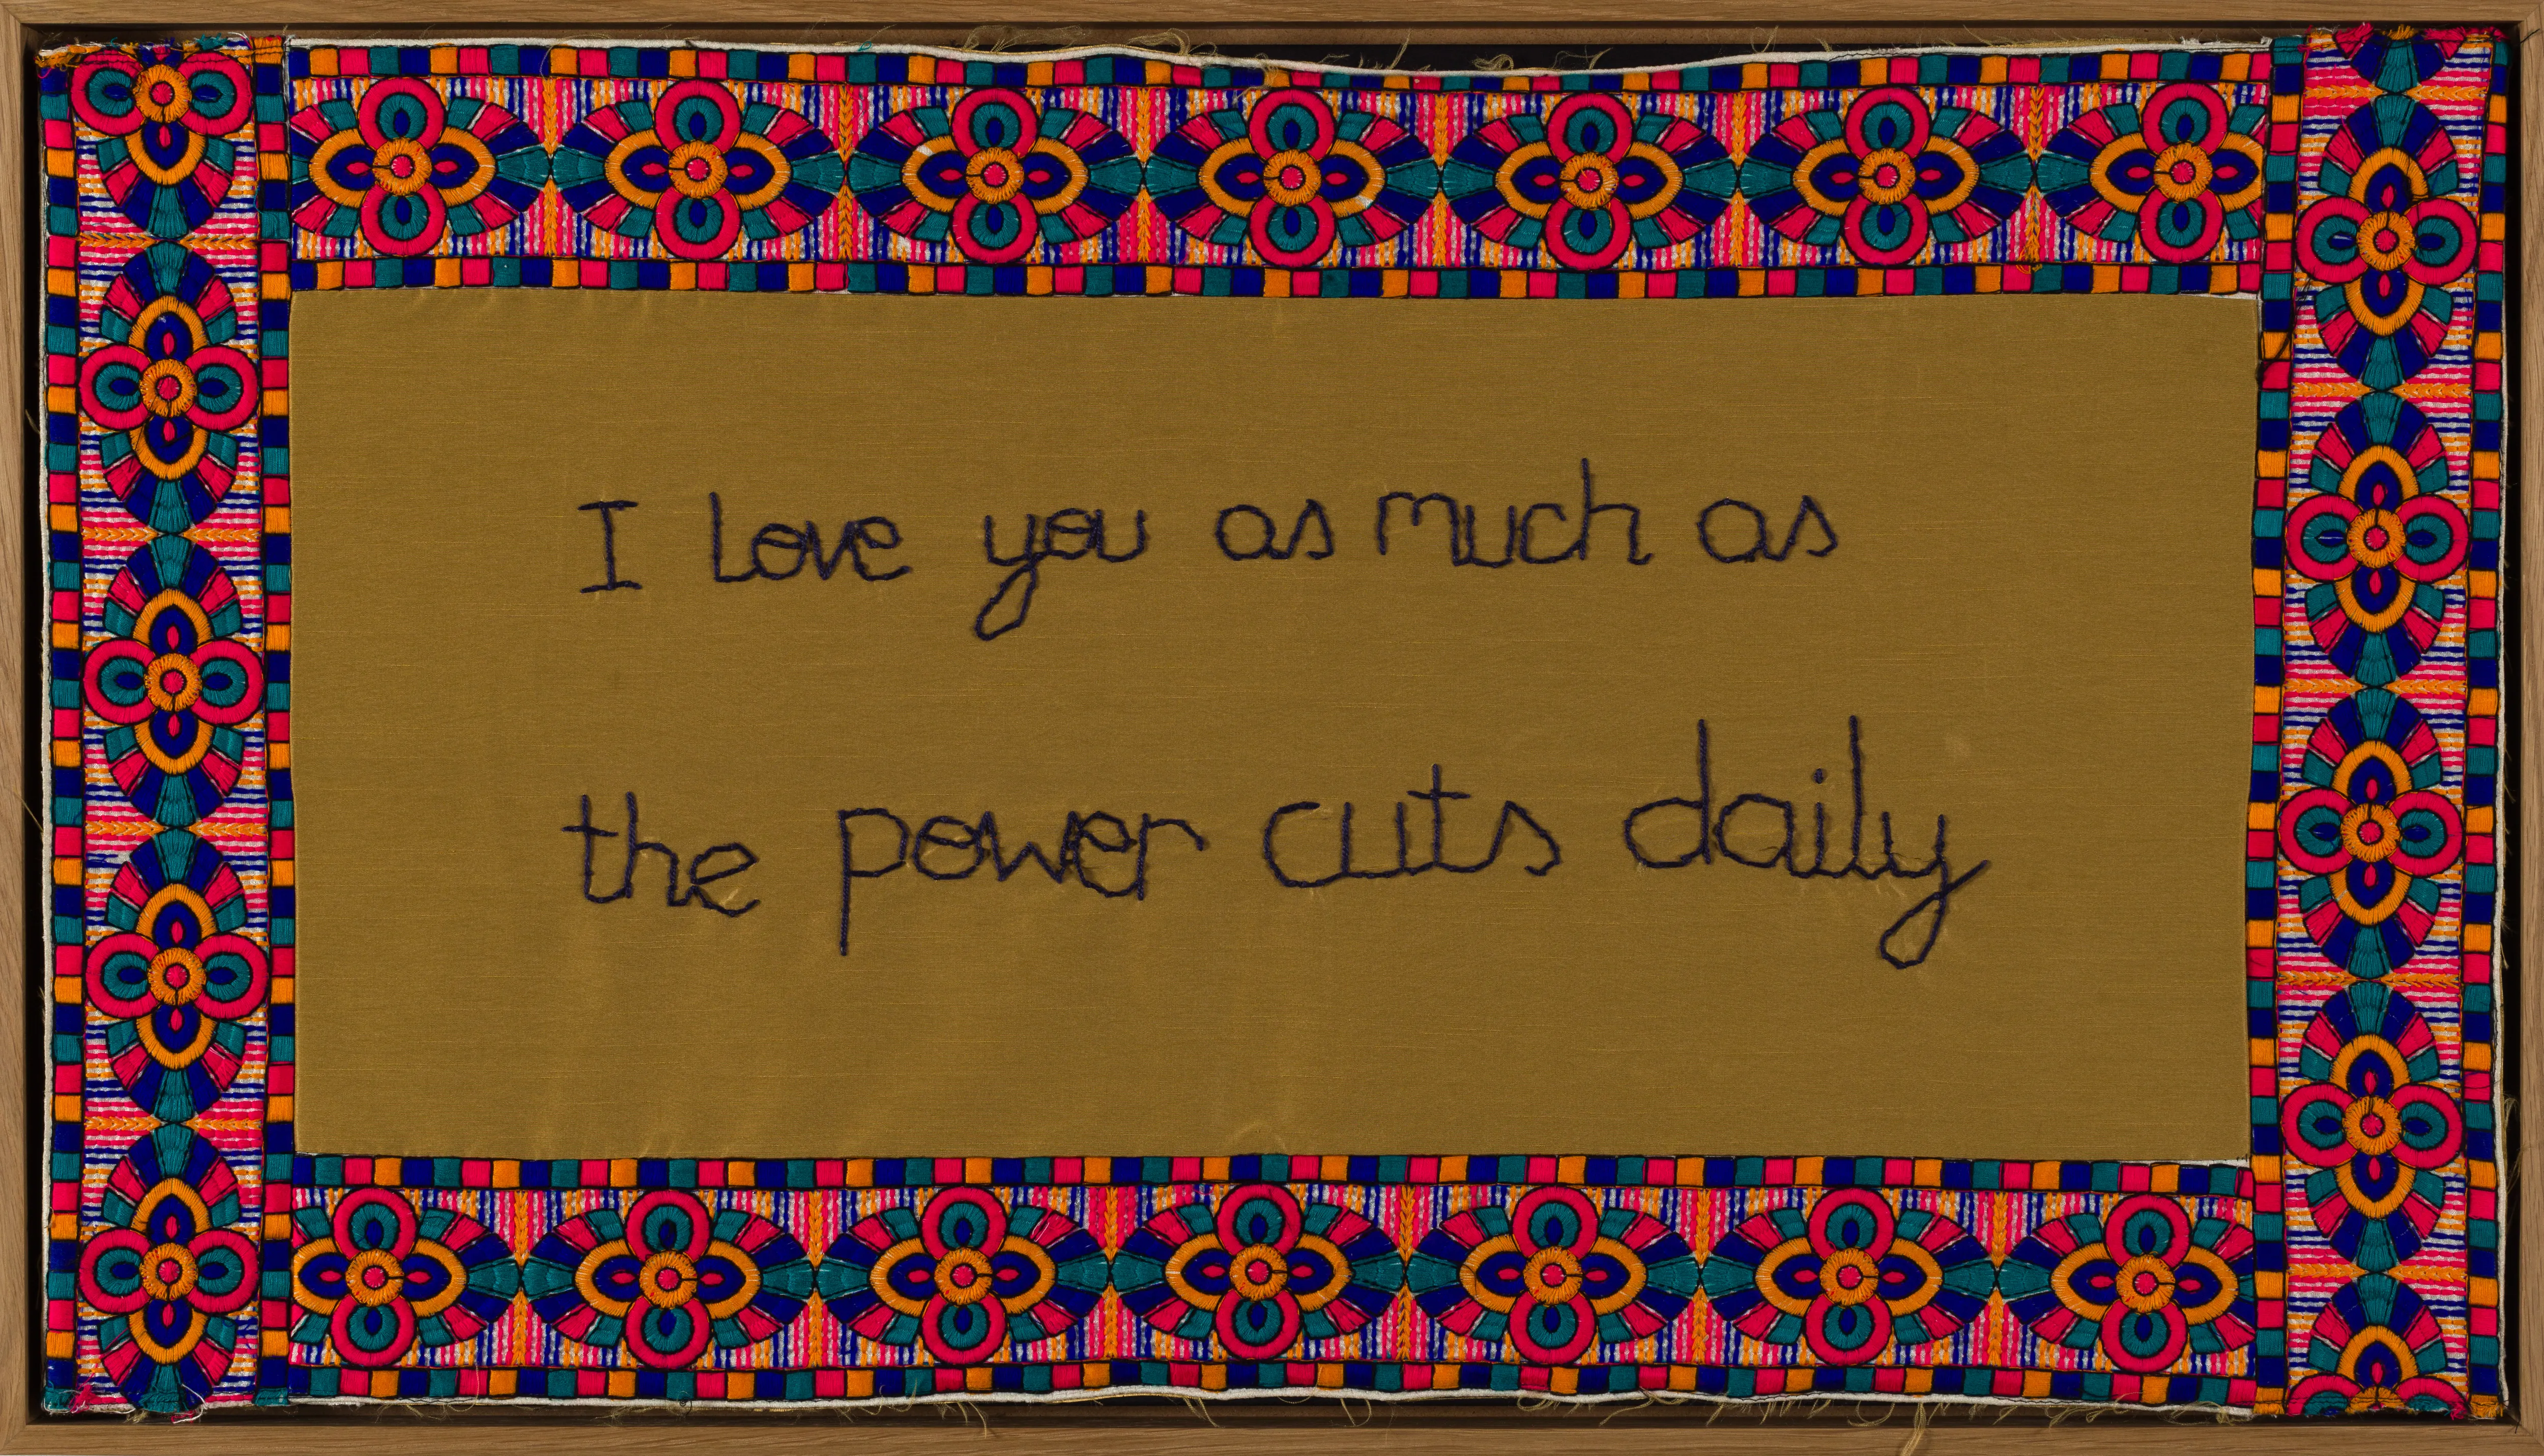 I love you as much as
the power cuts daily